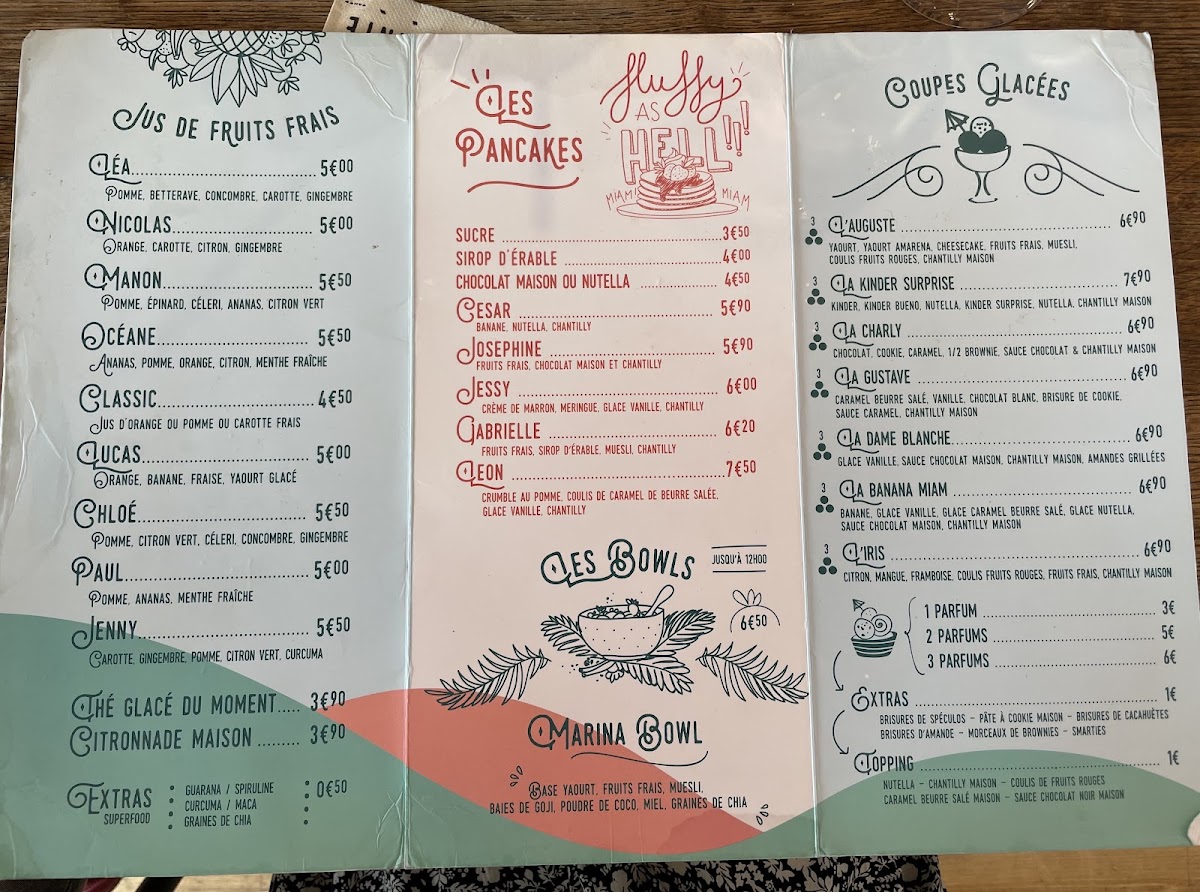 Jus de fruits frais
Léa 5€00
Pomme, betterave, concombre, carotte, gingembre
Nicolas 5€00
Orange, carotte, citron, gingembre
Manon 5€50
Pomme, épinard, céleri, ananas, citron vert
Océane 5€50
Ananas, pomme, orange, citron, menthe fraîche
Classic 4€50
Jus d'orange ou pomme ou carotte frais
Lucas 5€00
Orange, banane, fraise, yaourt glacé
Chloé 5€50
Pomme, citron vert, céleri, concombre, gingembre
Paul 5€00
Pomme, ananas, menthe fraîche
Jenny 5€50
Carotte, gingembre, pomme, citron vert, curcuma
Thé glacé du moment 3€90
Citronnade maison 3€90
Extras
superfood
guarana / spiruline
curcuma / maca
graines de chia
0€50
Les
Pancakes
fluffy
AS
HELL!!!
MIAM! MIAM
SUCRE 3€50
SIROP D'ÉRABLE 4€00
CHOCOLAT MAISON OU NUTELLA 4€50
Cesar 5€90
BANANE, NUTELLA, CHANTILLY
Josephine 5€90
FRUITS FRAIS, CHOCOLAT MAISON ET CHANTILLY
Jessy 6€00
CRÈME DE MARRON, MERINGUE, GLACE VANILLE, CHANTILLY
Gabrielle 6€20
FRUITS FRAIS, SIROP D'ÉRABLE, MUESLI, CHANTILLY
Leon 7€50
CRUMBLE AU POMME, COULIS DE CARAMEL DE BEURRE SALÉE,
GLACE VANILLE, CHANTILLY
Les Bowls
JUSQU'À 12H00
6€50
Marina Bowl
Base yaourt, fruits frais, muesli,
baies de goji, poudre de coco, miel, graines de chia
Coupes Glacées
3 L'Auguste 6€90
YAOURT, YAOURT AMARENA, CHEESECAKE, FRUITS FRAIS, MUESLI,
COULIS FRUITS ROUGES, CHANTILLY MAISON
3 La Kinder Surprise 7€90
KINDER, KINDER BUENO, NUTELLA, KINDER SURPRISE, NUTELLA, CHANTILLY MAISON
3 La Charly 6€90
CHOCOLAT, COOKIE, CARAMEL, 1/2 BROWNIE, SAUCE CHOCOLAT & CHANTILLY MAISON
3 La Gustave 6€90
CARAMEL BEURRE SALÉ, VANILLE, CHOCOLAT BLANC, BRISURE DE COOKIE,
SAUCE CARAMEL, CHANTILLY MAISON
3 La Dame Blanche 6€90
GLACE VANILLE, SAUCE CHOCOLAT MAISON, CHANTILLY MAISON, AMANDES GRILLÉES
3 La Banana Miam 6€90
BANANE, GLACE VANILLE, GLACE CARAMEL BEURRE SALÉ, GLACE NUTELLA,
SAUCE CHOCOLAT MAISON, CHANTILLY MAISON
3 L'Iris 6€90
CITRON, MANGUE, FRAMBOISE, COULIS FRUITS ROUGES, FRUITS FRAIS, CHANTILLY MAISON
1 PARFUM 3€
2 PARFUMS 5€
3 PARFUMS 6€
Extras 1€
BRISURES DE SPÉCULOS – PÂTE À COOKIE MAISON – BRISURES DE CACAHUÈTES
BRISURES D'AMANDE – MORCEAUX DE BROWNIES – SMARTIES
Topping 1€
NUTELLA – CHANTILLY MAISON – COULIS DE FRUITS ROUGES
CARAMEL BEURRE SALÉ MAISON – SAUCE CHOCOLAT NOIR MAISON